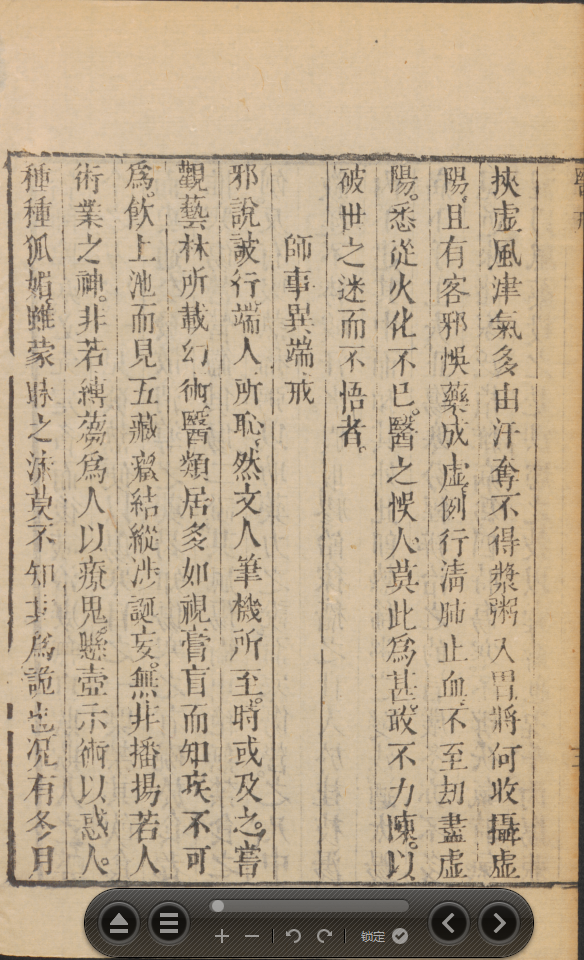 挾虛風津氣多由汗奪不得漿粥入胃將何收攝虛
陽。且有客邪悞藥成虛。例行淸肺止血。不至劫盡虛
陽。悉從火化不已。醫之悞人。莫此爲甚。敢不力陳。以
破世之迷而不悟者。
師事異端戒
邪說詖行端人所恥。然文人筆機所至。時或及之。嘗
觀藝林所載幻術。醫類居多如視膏肓而知疾不可
爲。飮上池而見五藏癥結縱涉誕妄。無非播揚若人
術業之神。非若縛芻爲人以療鬼。懸壺示術以惑人。
種種狐媚。雖蒙昧之流莫不知其爲詭也。况有冬月
锁定